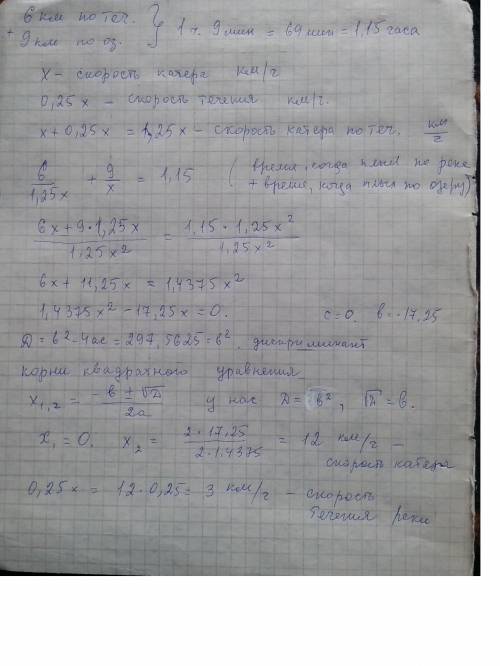 6 км по теч. } 1 ч. 9 мин = 69 мин = 1,15 часа
+ 9 км по оз.
x - скорость катера км/ч
0,25x - скорость течения км/ч.
x + 0,25x = 1,25x - скорость катера по теч. км/ч
6/1,25x + 9/x = 1,15 (время, когда плыл по реке
+ время, когда плыл по озеру)
6x + 9·1,25x / 1,25x² = 1,15 · 1,25x² / 1,25x²
6x + 11,25x = 1,4375x²
1,4375x² - 17,25x = 0. c=0. b=-17,25
D = b²-4ac = 297,5625 = b². дискриминант
корни квадратного уравнения
x₁,₂ = -b ± √D / 2a у нас D = b², √D = b.
x₁ = 0. x₂ = 2·17,25 / 2·1,4375 = 12 км/ч -
скорость катера
0,25x = 12·0,25 = 3 км/ч - скорость
течения реки